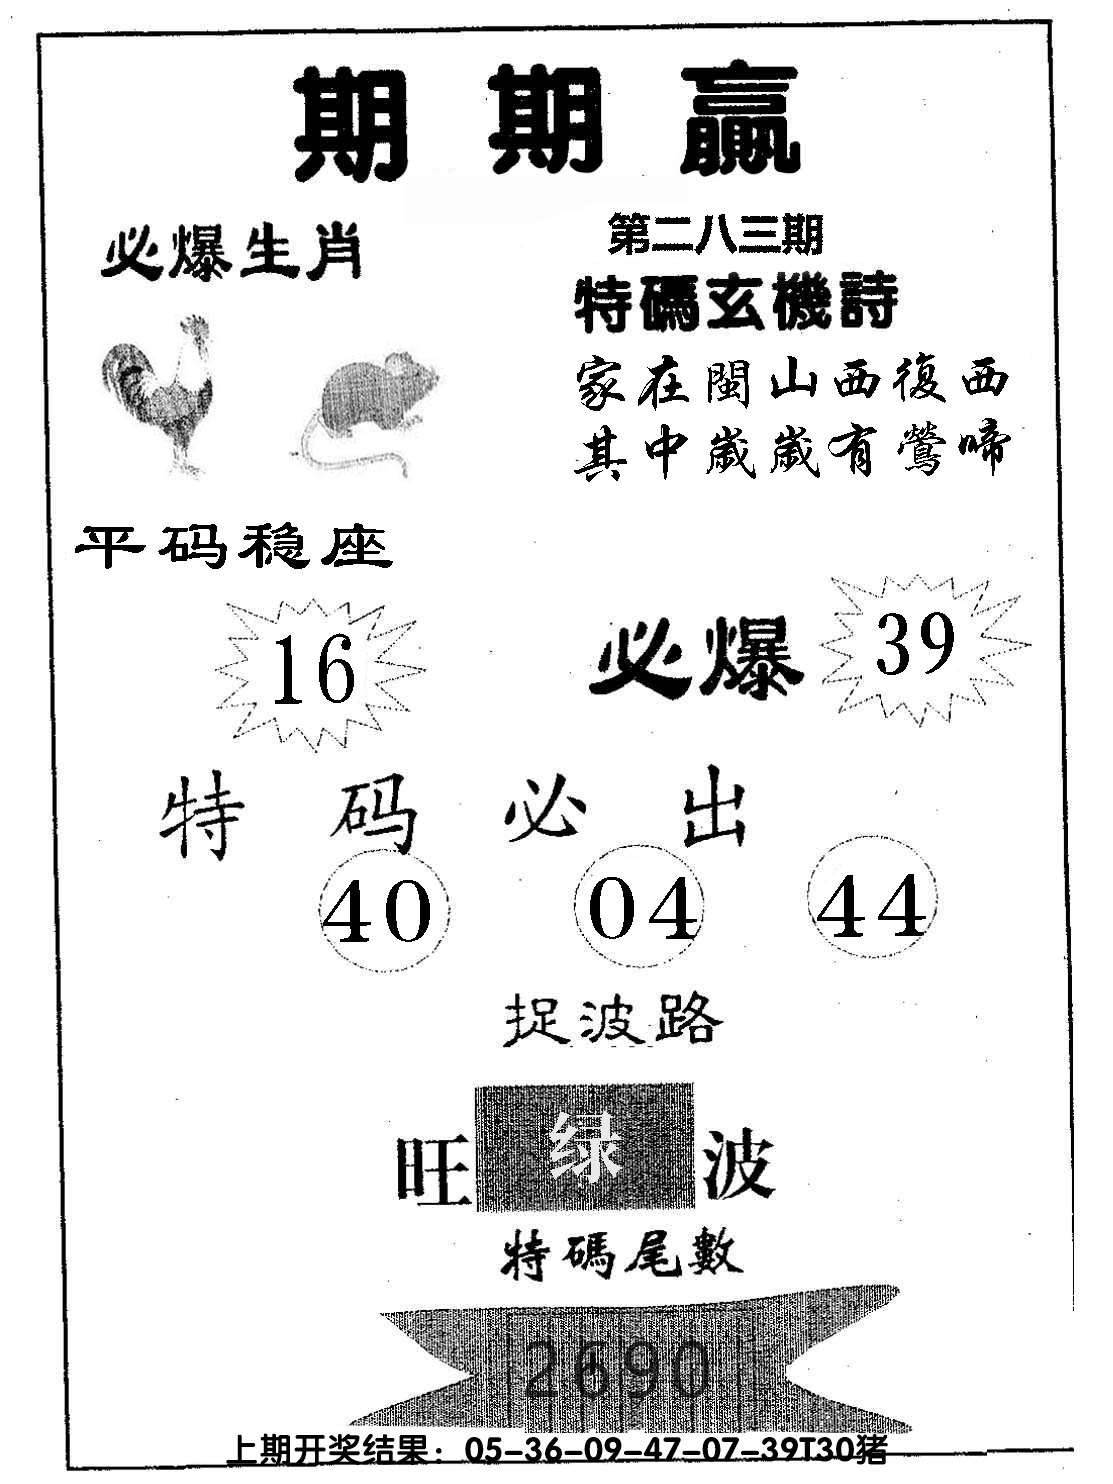 期期贏
必爆生肖
第二八三期
特碼玄機詩
家在閩山西復西
其中歲歲有鶯啼
平码稳座
16
必爆 39
特码必出
40 04 44
捉波路
旺 绿 波
特碼尾數
2690
上期开奖结果：05-36-09-47-07-39T30猪